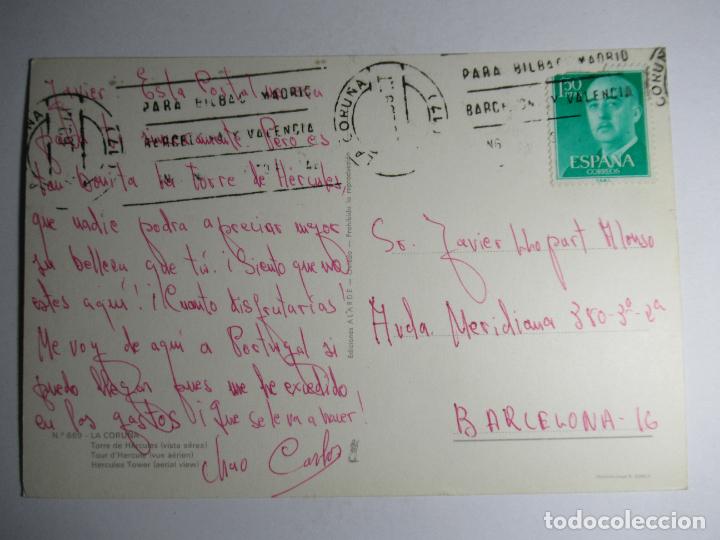 Javier Esta Postal
Pero es
tan bonita la torre de Hércules
que nadie podra apreciar mejor
su belleza que tú. ¡Siento que no
estes aquí! ¡Cuanto disfrutarías!
Me voy de aquí a Portugal si
puedo llegar pues me he excedido
en los gastos ¡Que se le va a hacer!
Chao Carlos
N.º 669 - LA CORUÑA
Torre de Hércules (vista aérea)
Tour d'Hercule (vue aérien)
Hercules Tower (aerial view)
Ediciones ALARDE - Oviedo - Prohibida la reproducción
LA CORUÑA
PARA BILBAO MADRID
BARCELONA Y VALENCIA
LA CORUÑA
PARA BILBAO MADRID
BARCELONA Y VALENCIA
CORUÑA
1,50
PTAS
ESPAÑA
CORREOS
Sr. Javier Llopart Alonso
Avda. Meridiana 380-3º-2ª
BARCELONA-16
todocoleccion.net